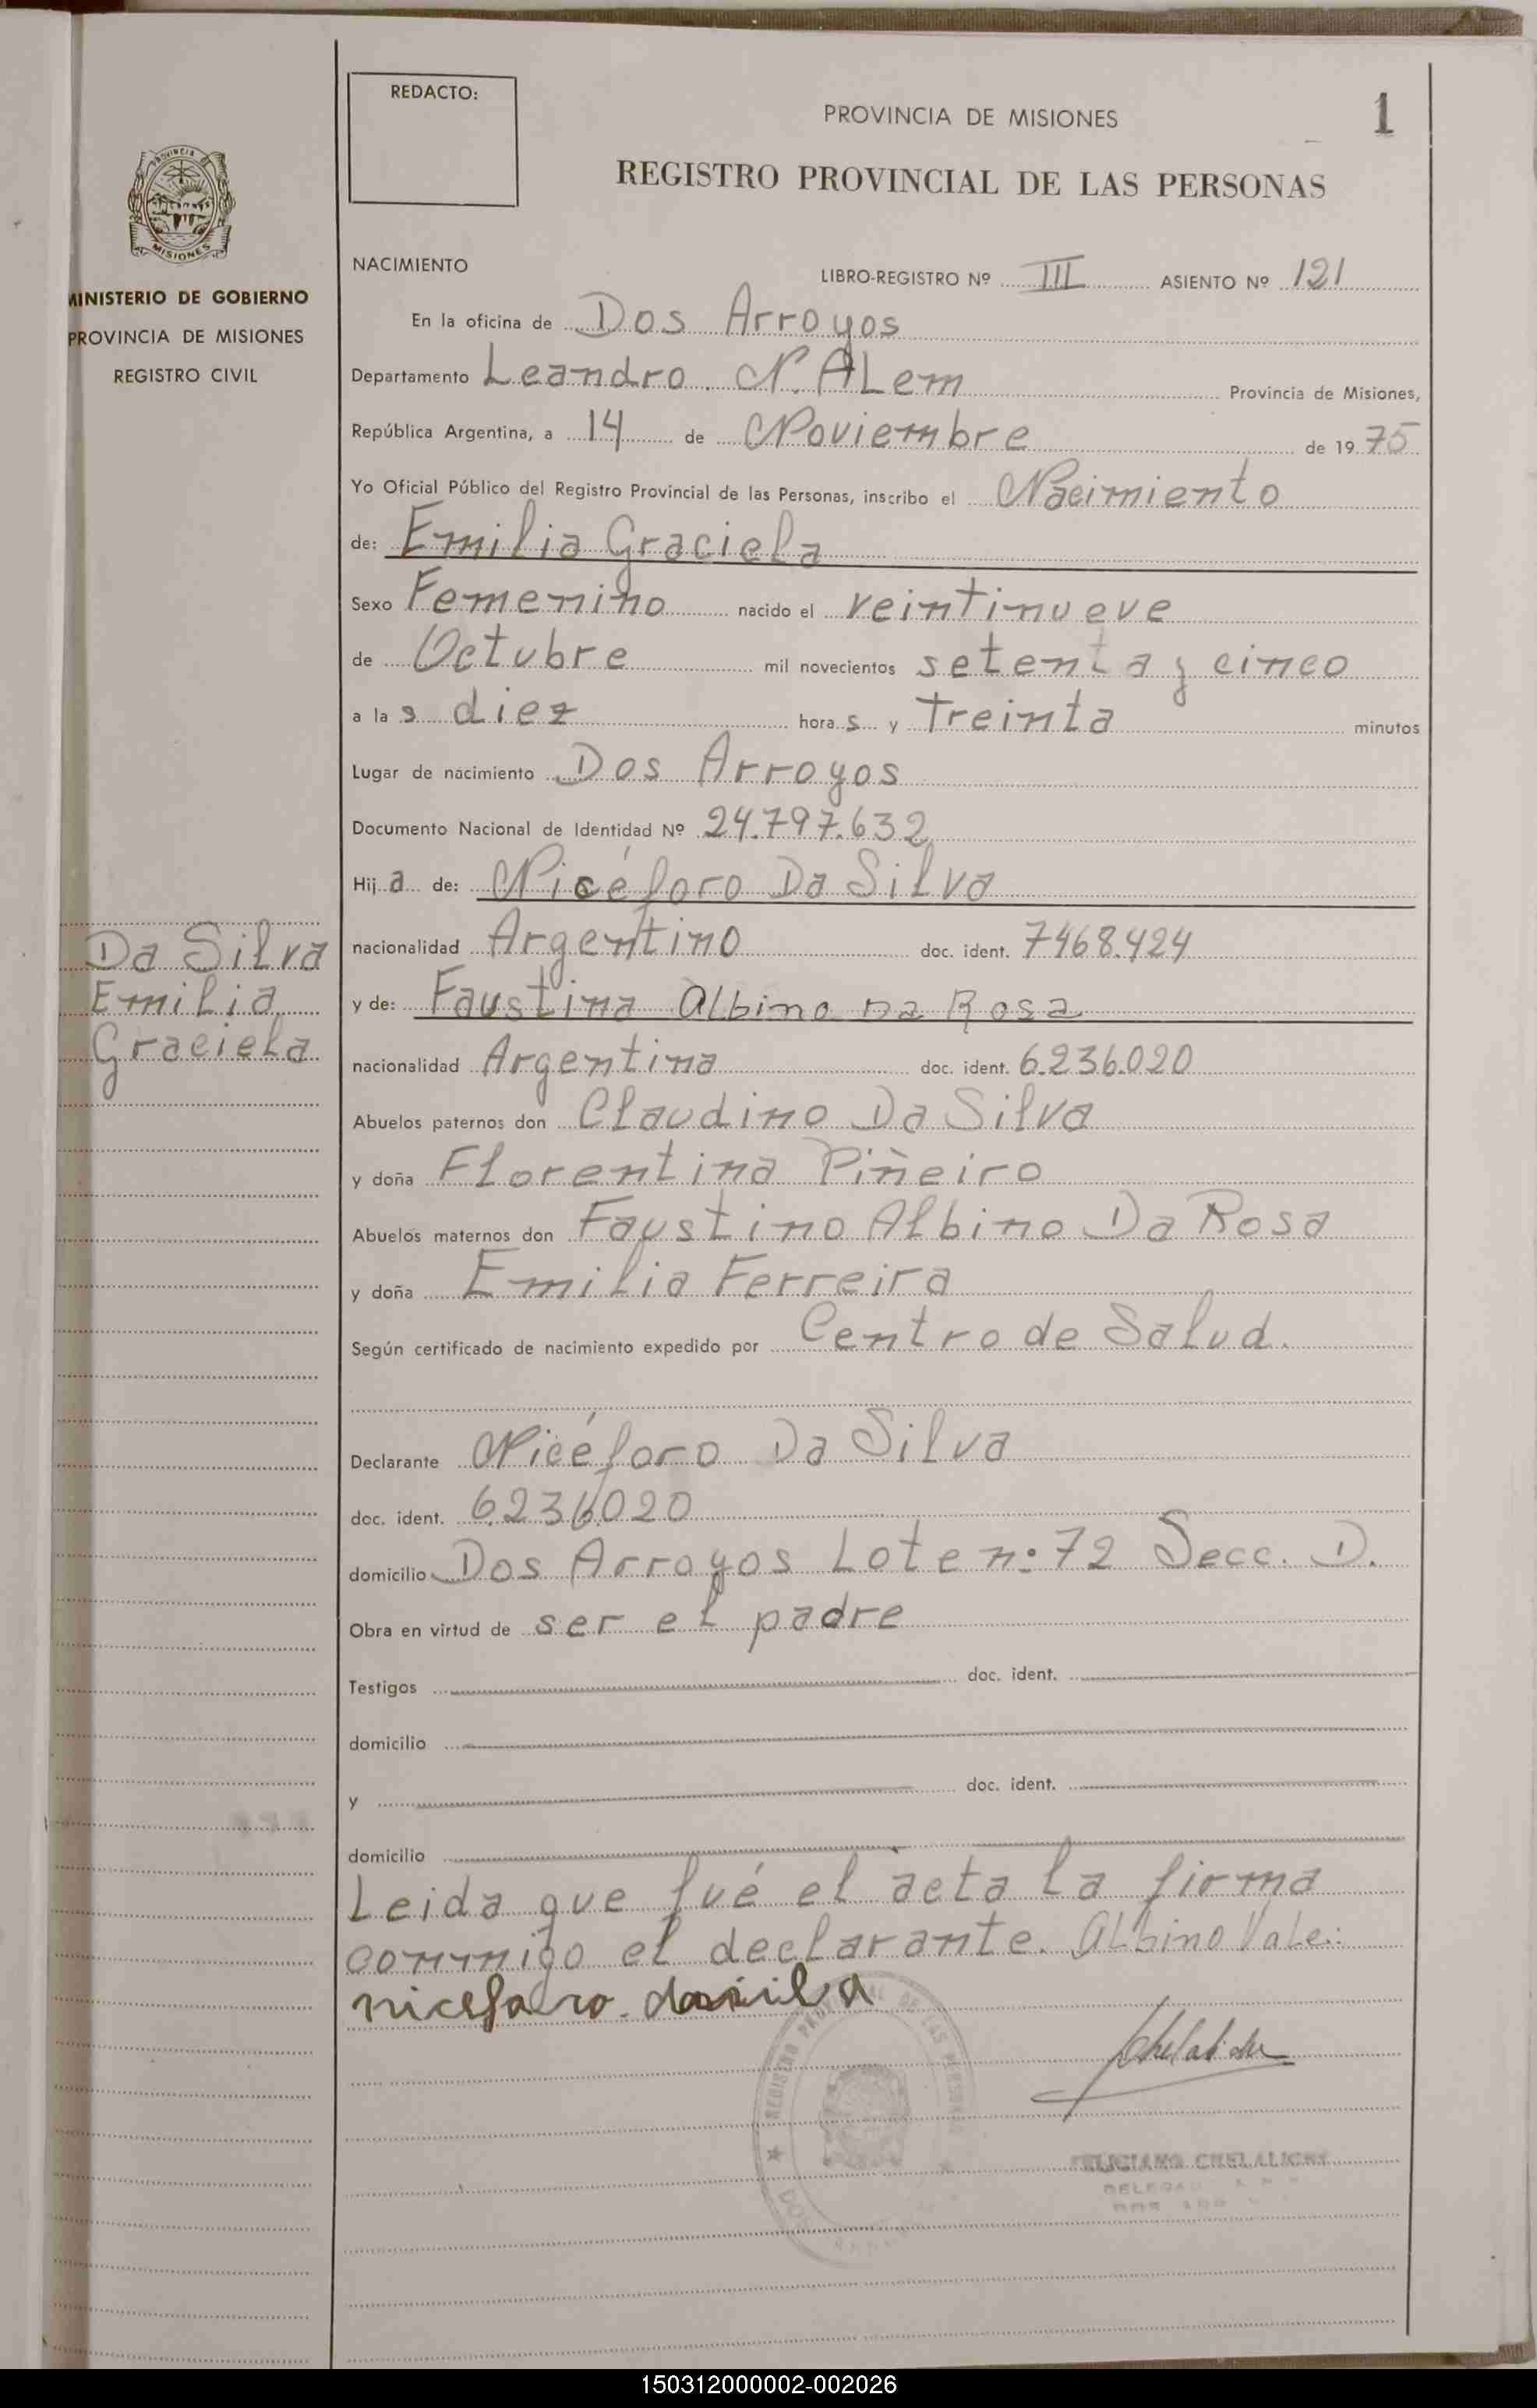 REDACTO:
PROVINCIA DE MISIONES
1
REGISTRO PROVINCIAL DE LAS PERSONAS
PROVINCIA DE
MISIONES
MINISTERIO DE GOBIERNO
PROVINCIA DE MISIONES
REGISTRO CIVIL
NACIMIENTO
LIBRO-REGISTRO Nº III ASIENTO Nº 121
En la oficina de Dos Arroyos
Departamento Leandro N. ALem Provincia de Misiones,
República Argentina, a 14 de Noviembre de 1975
Yo Oficial Público del Registro Provincial de las Personas, inscribo el Nacimiento
de: Emilia Graciela
Sexo Femenino nacido el veintinueve
de Octubre mil novecientos setenta y cinco
a las diez horas y treinta minutos
Lugar de nacimiento Dos Arroyos
Documento Nacional de Identidad Nº 24.797.632
Hija de: Nicéforo Da Silva
nacionalidad Argentino doc. ident. 7468.424
y de: Faustina Albino Da Rosa
nacionalidad Argentina doc. ident. 6.236.020
Abuelos paternos don Claudino Da Silva
y doña Florentina Piñeiro
Abuelos maternos don Faustino Albino Da Rosa
y doña Emilia Ferreira
Según certificado de nacimiento expedido por Centro de Salud.
Declarante Nicéforo Da Silva
doc. ident. 6.236.020
domicilio Dos Arroyos Lote n: 72 Secc. D.
Obra en virtud de ser el padre
Testigos doc. ident.
domicilio
y doc. ident.
domicilio
Leida que fué el acta la firma
conmigo el declarante. Albino Vale:
Da Silva
Emilia
Graciela
REGISTRO PROVINCIAL DE LAS PERSONAS
FELICIANO CHELALICHE
150312000002-002026